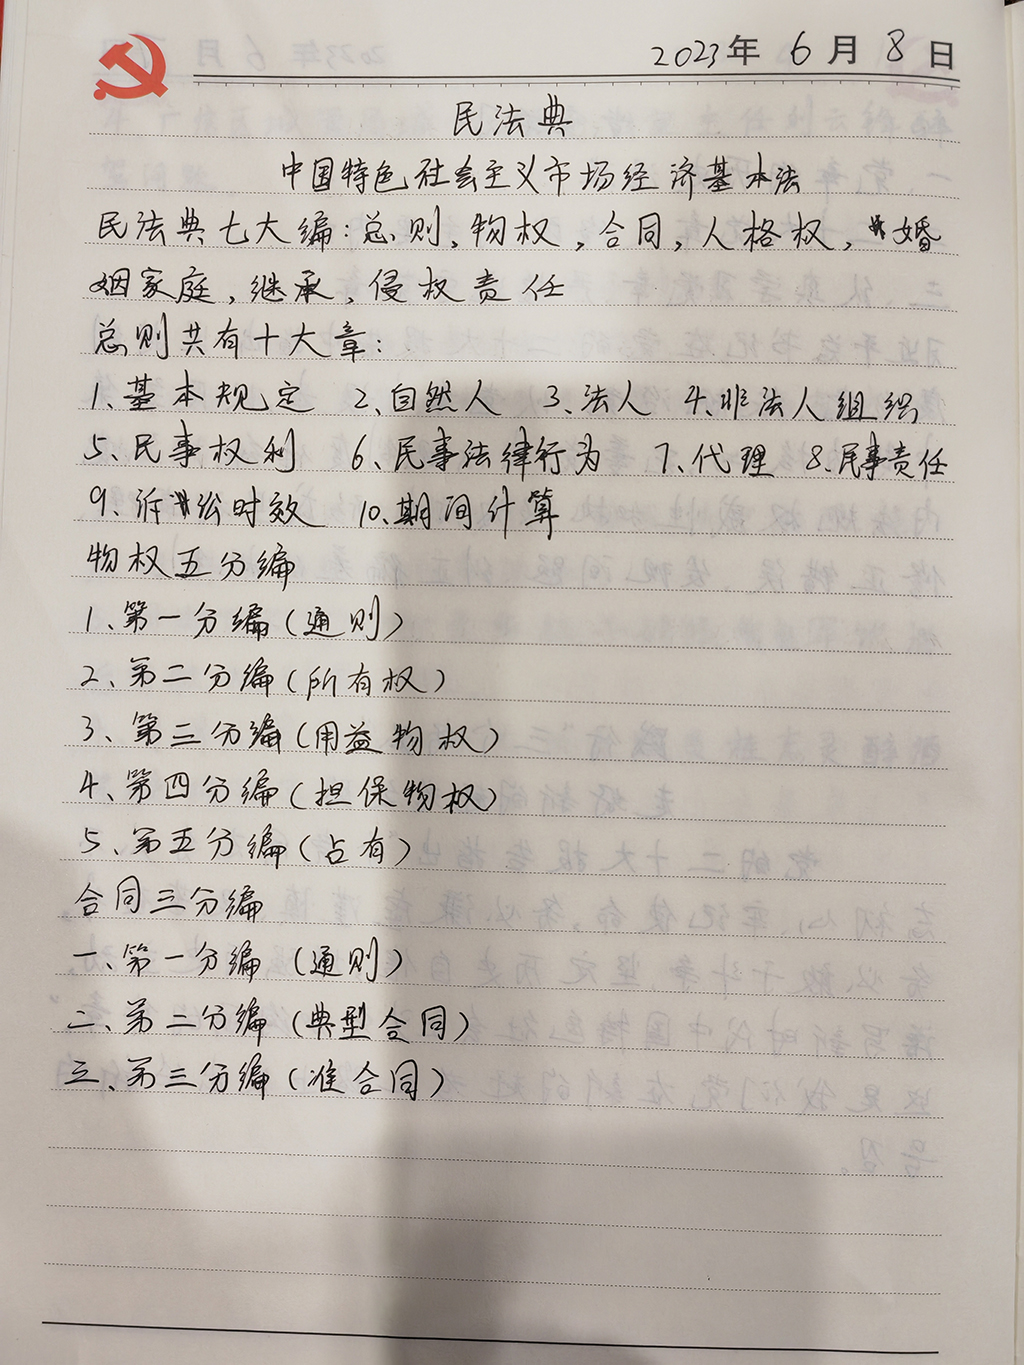 2023年 6月 8日
民法典
中国特色社会主义市场经济基本法
民法典七大编：总则，物权，合同，人格权，婚
姻家庭，继承，侵权责任
总则共有十大章：
1、基本规定 2、自然人 3、法人 4、非法人组织
5、民事权利 6、民事法律行为 7、代理 8、民事责任
9、诉讼时效 10、期间计算
物权五分编
1、第一分编（通则）
2、第二分编（所有权）
3、第三分编（用益物权）
4、第四分编（担保物权）
5、第五分编（占有）
合同三分编
一、第一分编（通则）
二、第二分编（典型合同）
三、第三分编（准合同）